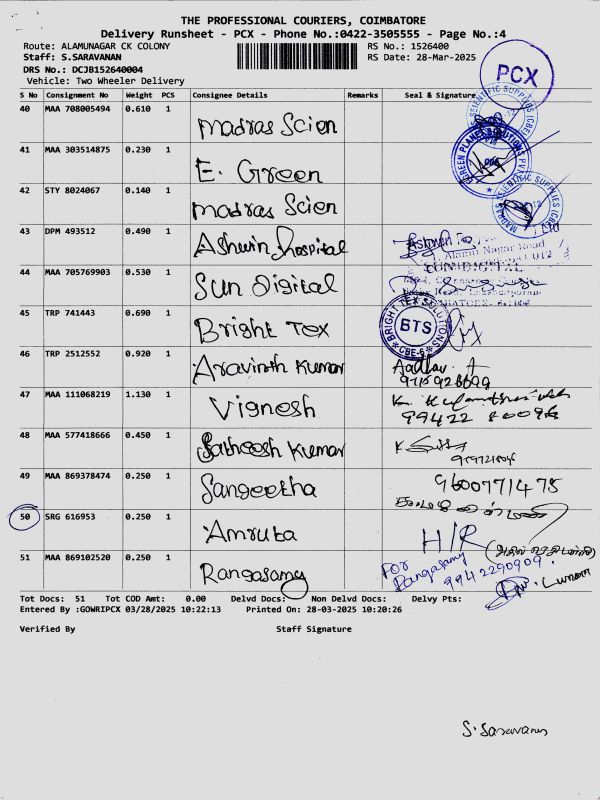 THE PROFESSIONAL COURIERS, COIMBATORE
Delivery Runsheet - PCX - Phone No.:0422-3505555 - Page No.:4
Route: ALAMUNAGAR CK COLONY
RS No.: 1526400
Staff: S.SARAVANAN
RS Date: 28-Mar-2025
DRS No.: DCJB152640004
Vehicle: Two Wheeler Delivery
PCX
S No Consignment No Weight PCS Consignee Details Remarks Seal & Signature
40 MAA 708005494 0.610 1 Madras Scien
41 MAA 303514875 0.230 1 E. Green
GREEN PLANET SOLUTIONS PVT
42 STY 8024067 0.140 1 Madras Scien
MADRAS SCIENTIFIC SUPPLIES (CBE)
43 DPM 493512 0.490 1 Ashwin Hospital
44 MAA 705769903 0.530 1 Sun Digital
45 TRP 741443 0.690 1 Bright Tex
BRIGHT TEX SOLUTIONS BTS CBE-6
46 TRP 2512552 0.920 1 Aravinth Kumar
47 MAA 111068219 1.130 1 Vignesh
48 MAA 577418666 0.450 1 Satheesh Kumar
49 MAA 869378474 0.250 1 Sangeetha 9600771475
50 SRG 616953 0.250 1 Amruta H/R
51 MAA 869102520 0.250 1 Rangasamy For Rangasamy 9942290909.
Tot Docs: 51 Tot COD Amt: 0.00 Delvd Docs: Non Delvd Docs: Delvy Pts:
Entered By :GOWRIPCX 03/28/2025 10:22:13 Printed On: 28-03-2025 10:20:26
Verified By Staff Signature
S. Saravanan